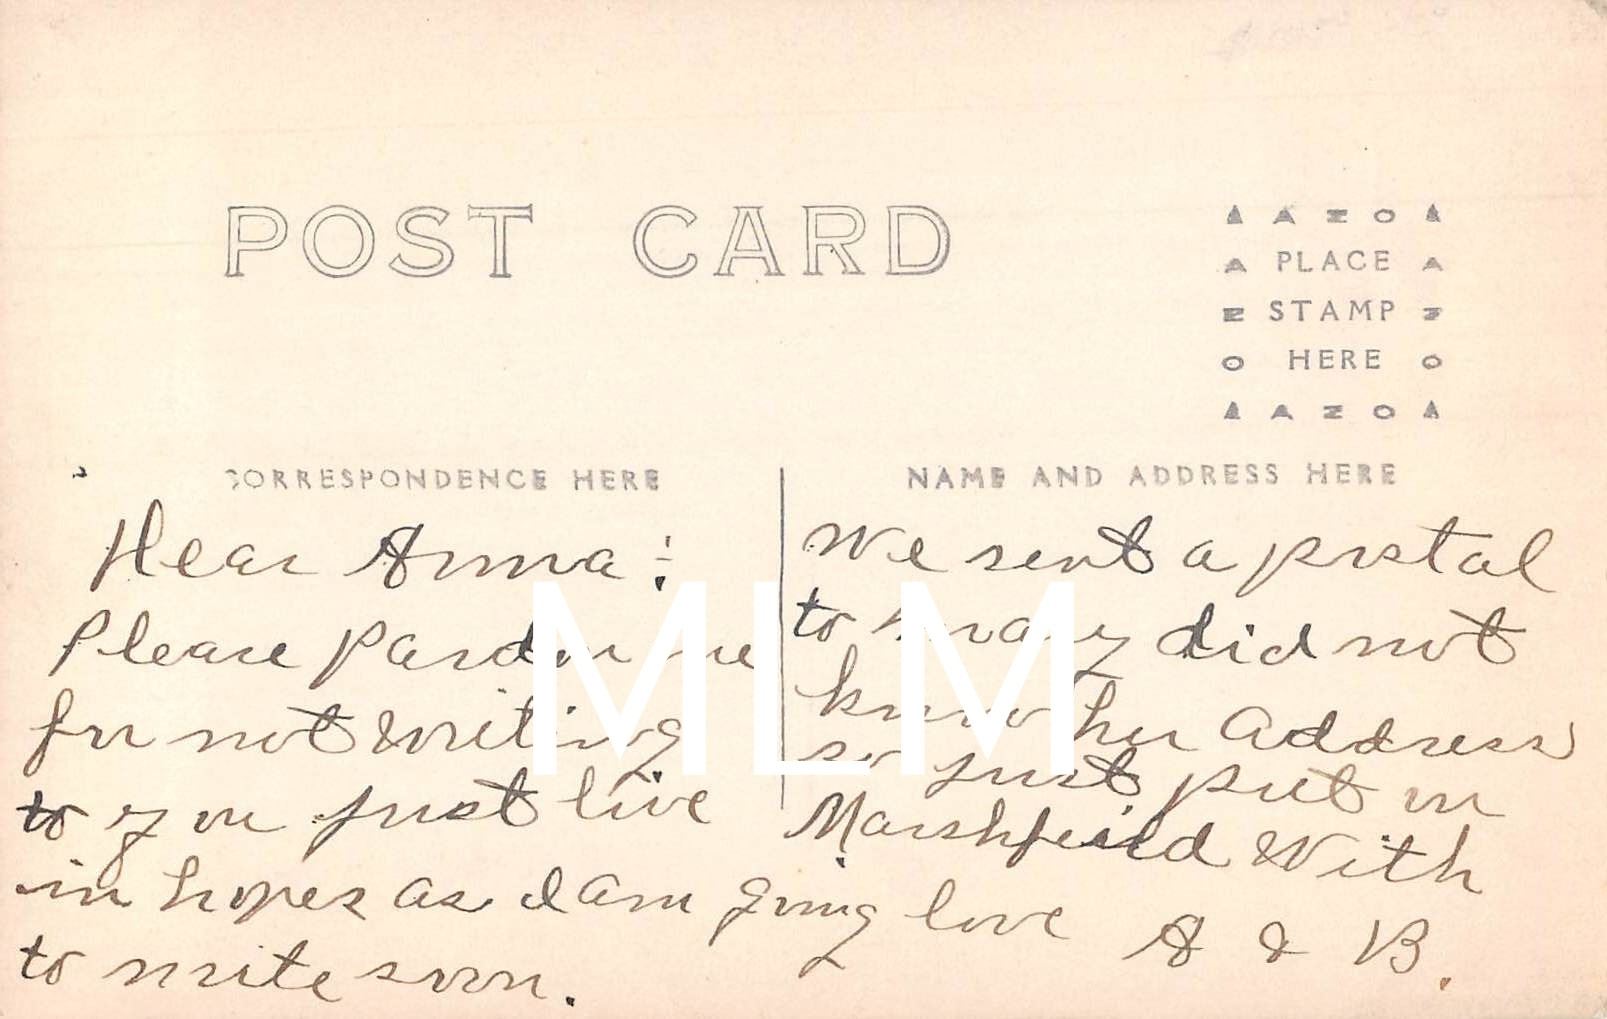 POST CARD
AZO
PLACE
STAMP
HERE
AZO
CORRESPONDENCE HERE
NAME AND ADDRESS HERE
Dear Anna:
Please pardon me
for not writing
to you just live
in hopes as I am going
to write soon.
We sent a postal
to Mary did not
know her address
so just put in
Marshfeild With
love A & B.
MLM